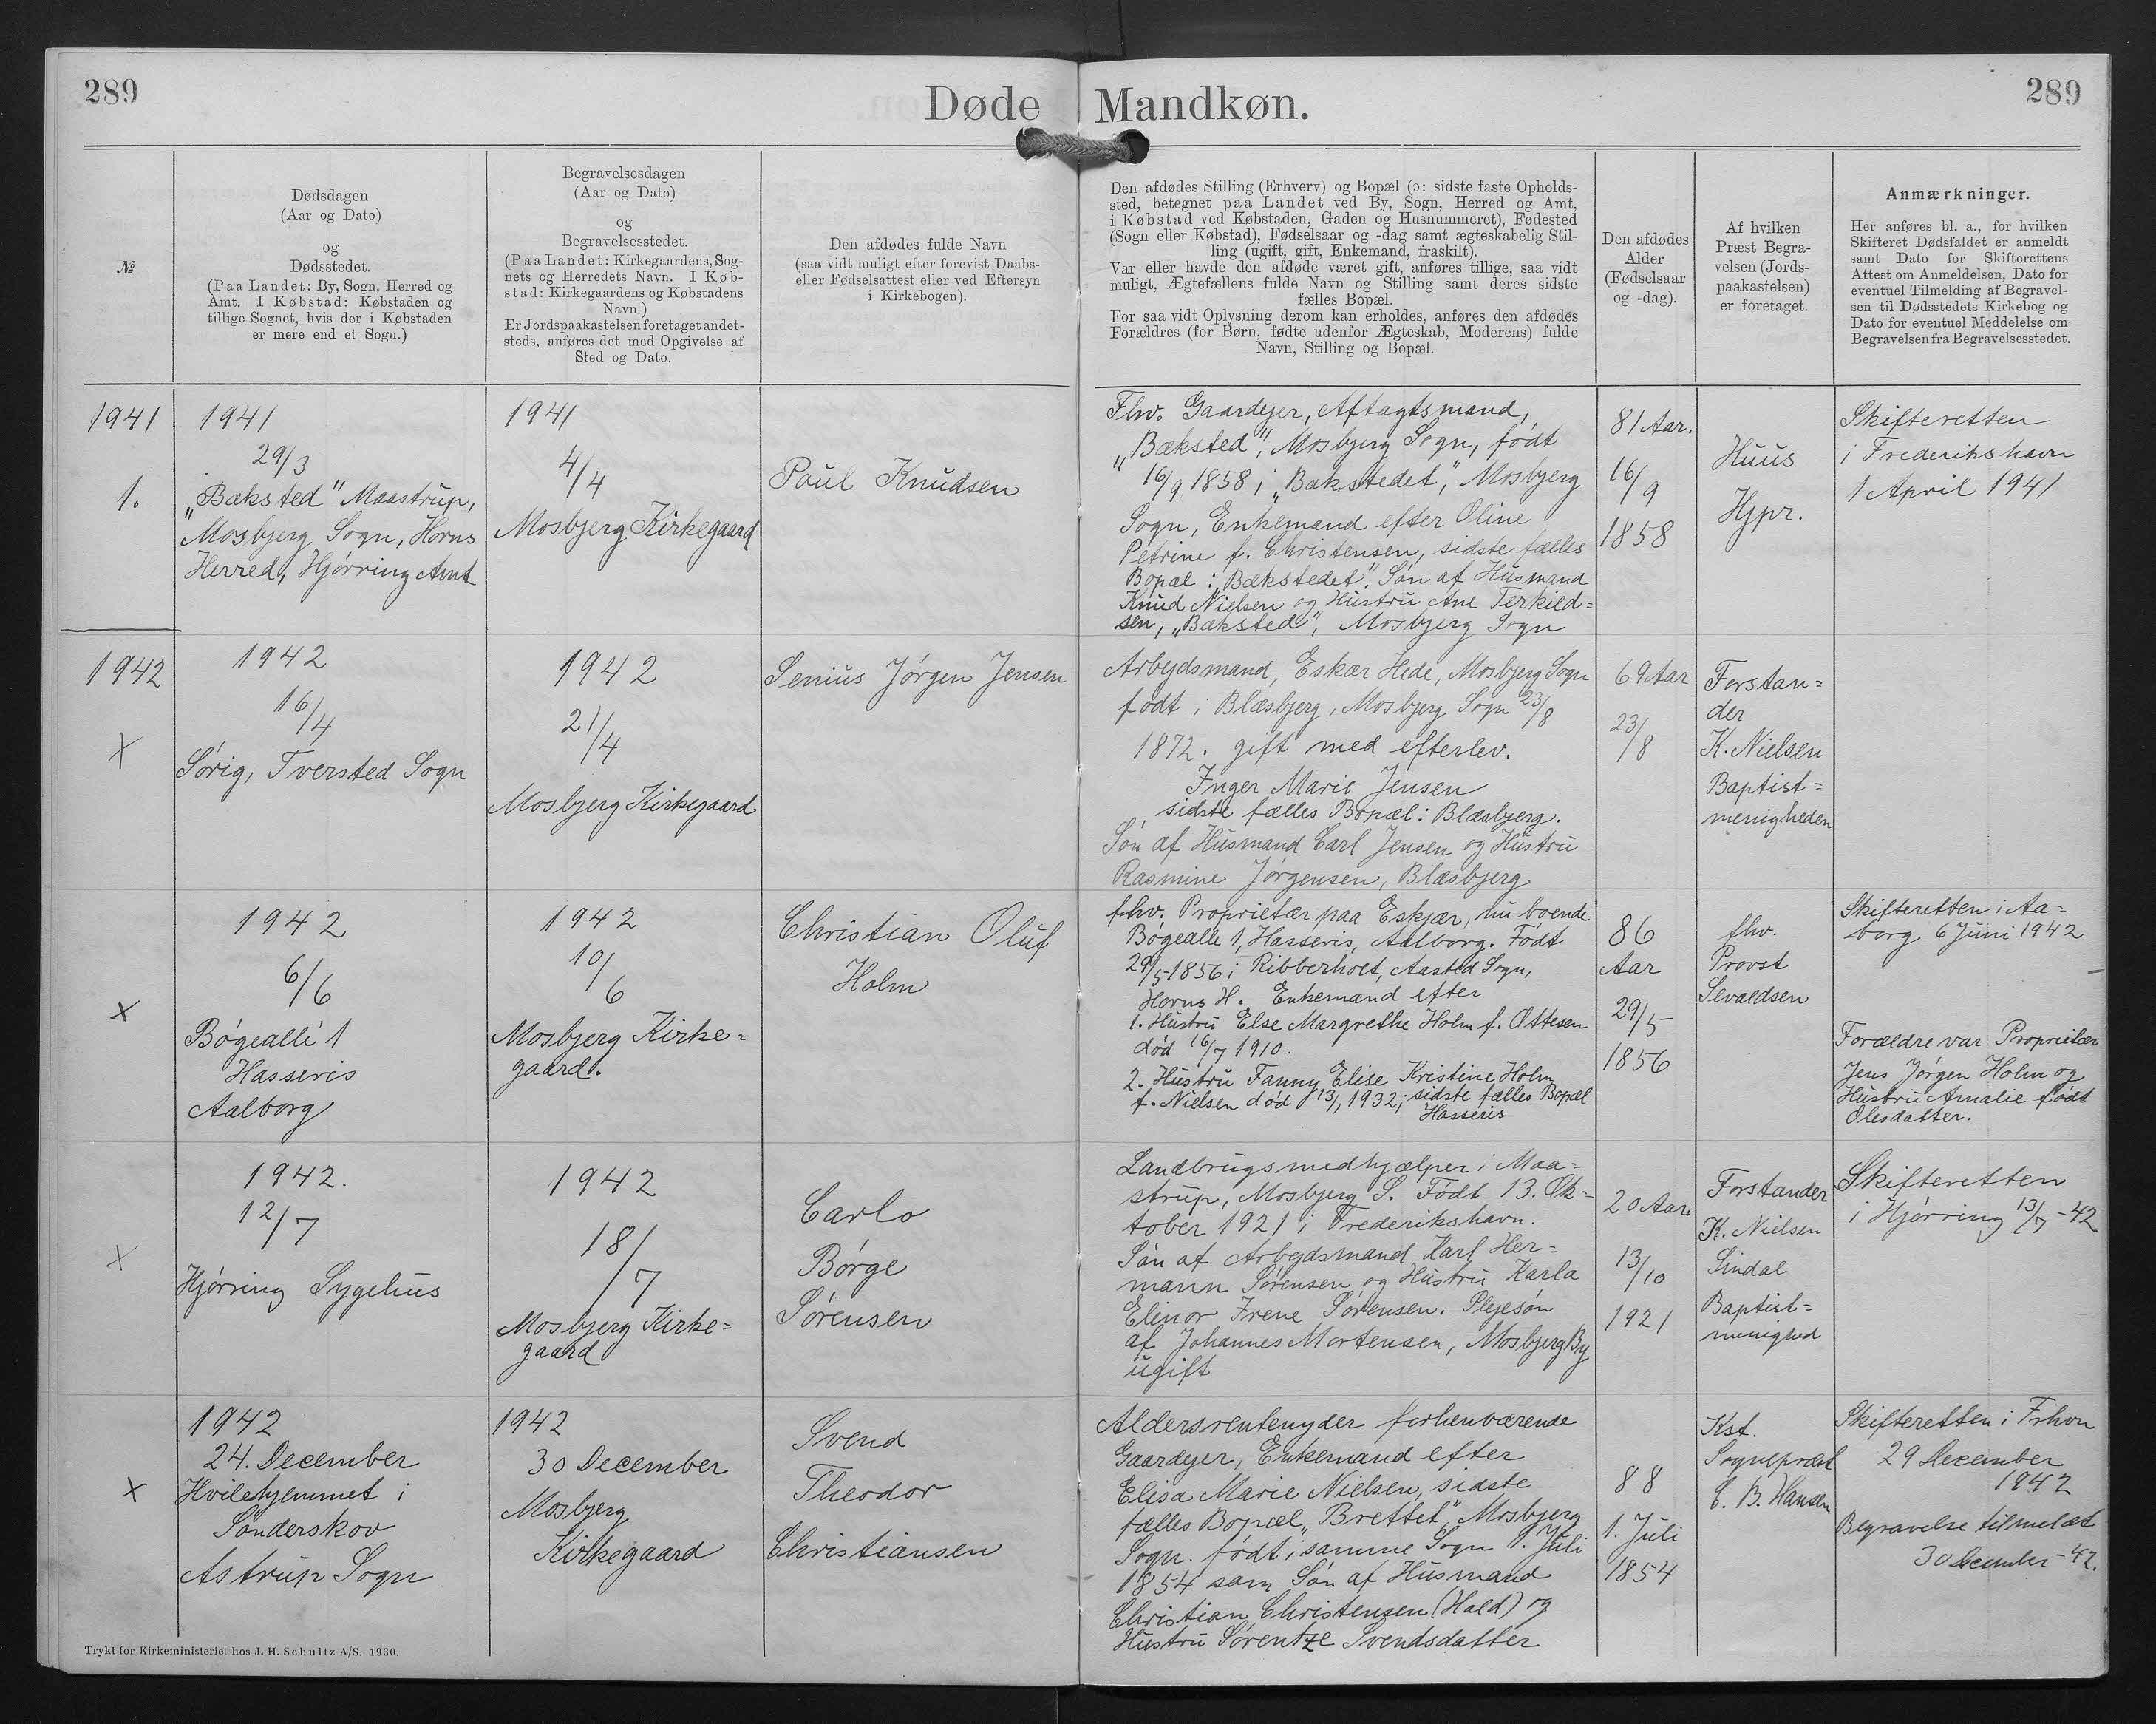 289
Døde
Mandkøn.
289
№
Dødsdagen
(Aar og Dato)
og
Dødsstedet.
(Paa Landet: By, Sogn, Herred og
Amt. I Købstad: Købstaden og
tillige Sognet, hvis der i Købstaden
er mere end et Sogn.)
Begravelsesdagen
(Aar og Dato)
og
Begravelsesstedet.
(Paa Landet: Kirkegaardens, Sog-
nets og Herredets Navn. I Køb-
stad: Kirkegaardens og Købstadens
Navn.)
Er Jordspaakastelsen foretaget andet-
steds, anføres det med Opgivelse af
Sted og Dato.
Den afdødes fulde Navn
(saa vidt muligt efter forevist Daabs-
eller Fødselsattest eller ved Eftersyn
i Kirkebogen).
Den afdødes Stilling (Erhverv) og Bopæl (ɔ: sidste faste Opholds-
sted, betegnet paa Landet ved By, Sogn, Herred og Amt,
i Købstad ved Købstaden, Gaden og Husnummeret), Fødested
(Sogn eller Købstad), Fødselsaar og -dag samt ægteskabelig Stil-
ling (ugift, gift, Enkemand, fraskilt).
Var eller havde den afdøde været gift, anføres tillige, saa vidt
muligt, Ægtefællens fulde Navn og Stilling samt deres sidste
fælles Bopæl.
For saa vidt Oplysning derom kan erholdes, anføres den afdødes
Forældres (for Børn, fødte udenfor Ægteskab, Moderens) fulde
Navn, Stilling og Bopæl.
Den afdødes
Alder
(Fødselsaar
og -dag).
Af hvilken
Præst Begra-
velsen (Jords-
paakastelsen)
er foretaget.
Anmærkninger.
Her anføres bl. a., for hvilken
Skifteret Dødsfaldet er anmeldt
samt Dato for Skifterettens
Attest om Anmeldelsen, Dato for
eventuel Tilmelding af Begravel-
sen til Dødsstedets Kirkebog og
Dato for eventuel Meddelelse om
Begravelsen fra Begravelsesstedet.
1941
1.
1941
29/3
"Bæksted" Maastrup,
Mosbjerg Sogn, Horns
Herred, Hjørring Amt
1941
4/4
Mosbjerg Kirkegaard
Poul Knudsen
Fhv. Gaardejer, Aftagtsmand,
"Bæksted", Mosbjerg Sogn, født
16/9 1858 i "Bækstedet", Mosbjerg
Sogn, Enkemand efter Oline
Petrine f. Christensen, sidste fælles
Bopæl: "Bækstedet". Søn af Husmand
Knud Nielsen og Hustru Ane Terkild=
sen, "Bæksted", Mosbjerg Sogn
81 Aar.
16/9
1858
Huus
Hjpr.
Skifteretten
i Frederikshavn
1 April 1941
1942
X
1942
16/4
Sørig, Tversted Sogn
1942
21/4
Mosbjerg Kirkegaard
Senius Jørgen Jensen
Arbejdsmand, Eskær Hede, Mosbjerg Sogn
født i Blæsbjerg, Mosbjerg Sogn 23/8
1872. gift med efterlev.
Inger Marie Jensen
sidste fælles Bopæl: Blæsbjerg.
Søn af Husmand Carl Jensen og Hustru
Rasmine Jørgensen, Blæsbjerg
69 Aar
23/8
Forstan=
der
K. Nielsen
Baptist=
menigheden
X
1942
6/6
Bøgeallé 1
Hasseris
Aalborg
1942
10/6
Mosbjerg Kirke=
gaard.
Christian Oluf
Holm
fhv. Proprietær paa Eskjær, nu boende
Bøgealle 1, Hasseris, Aalborg. Født
29/5 1856 i Ribberholt, Aasted Sogn,
Horns H. Enkemand efter
1. Hustru Else Margrethe Holm f. Ottesen
død 16/7 1910.
2. Hustru Fanny Elise Kristine Holm
f. Nielsen død 13/1 1932; sidste fælles Bopæl
Hasseris
86
Aar
29/5
1856
fhv.
Provst
Sevaldsen
Skifteretten i Aa=
borg 6 Juni 1942
Forældre var Proprietær
Jens Jørgen Holm og
Hustru Amalie født
Olesdatter.
X
1942.
12/7
Hjørring Sygehus
1942
18/7
Mosbjerg Kirke=
gaard
Carlo
Børge
Sørensen
Landbrugsmedhjælper i Maa=
strup, Mosbjerg S. Født 13. Ok=
tober 1921 i Frederikshavn.
Søn af Arbejdsmand Karl Her=
mann Sørensen og Hustru Karla
Elinor Irene Sørensen. Plejesøn
af Johannes Mortensen, Mosbjerg By
ugift
20 Aar
13/10
1921
Forstander
K. Nielsen
Sindal
Baptist=
menighed
Skifteretten
i Hjørring 13/7-42
X
1942
24. December
Hvilehjemmet i
Sønderskov
Astrup Sogn
1942
30 December
Mosbjerg
Kirkegaard
Svend
Theodor
Christiansen
Aldersrentenyder forhenværende
Gaardejer, Enkemand efter
Elisa Marie Nielsen, sidste
fælles Bopæl "Brettet", Mosbjerg
Sogn. født i samme Sogn 1. Juli
1854 som Søn af Husmand
Christian Christensen (Hald) og
Hustru Sørentze Svendsdatter
88
1. Juli
1854
Kst.
Sognepræst
C. B. Hansen
Skifteretten i Frhvn
29 December
1942
Begravelse tilmeldt
30 December -42.
Trykt for Kirkeministeriet hos J. H. Schultz A/S. 1930.